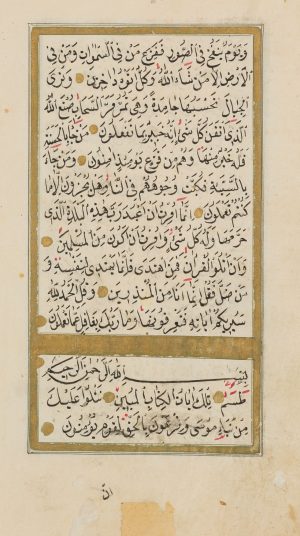 ويوم ينفخ في الصور ففزع من في السموات ومن في
الارض الا من شاء الله وكل اتوه داخرين وترى
الجبال تحسبها جامدة وهي تمر مر السحاب صنع الله
الذي اتقن كل شيء انه خبير بما تفعلون من جاء بالحسنة
فله خير منها وهم من فزع يومئذ امنون ومن جاء
بالسيئة فكبت وجوههم في النار هل تجزون الا ما
كنتم تعملون انما امرت ان اعبد رب هذه البلدة الذي
حرمها وله كل شيء وامرت ان اكون من المسلمين
وان اتلو القران فمن اهتدى فانما يهتدي لنفسه و
من ضل فقل انما انا من المنذرين وقل الحمد لله
سيريكم اياته فتعرفونها وما ربك بغافل عما تعملون
بسم الله الرحمن الرحيم
طسم تلك ايات الكتاب المبين نتلوا عليك
من نبأ موسى وفرعون بالحق لقوم يؤمنون
ان